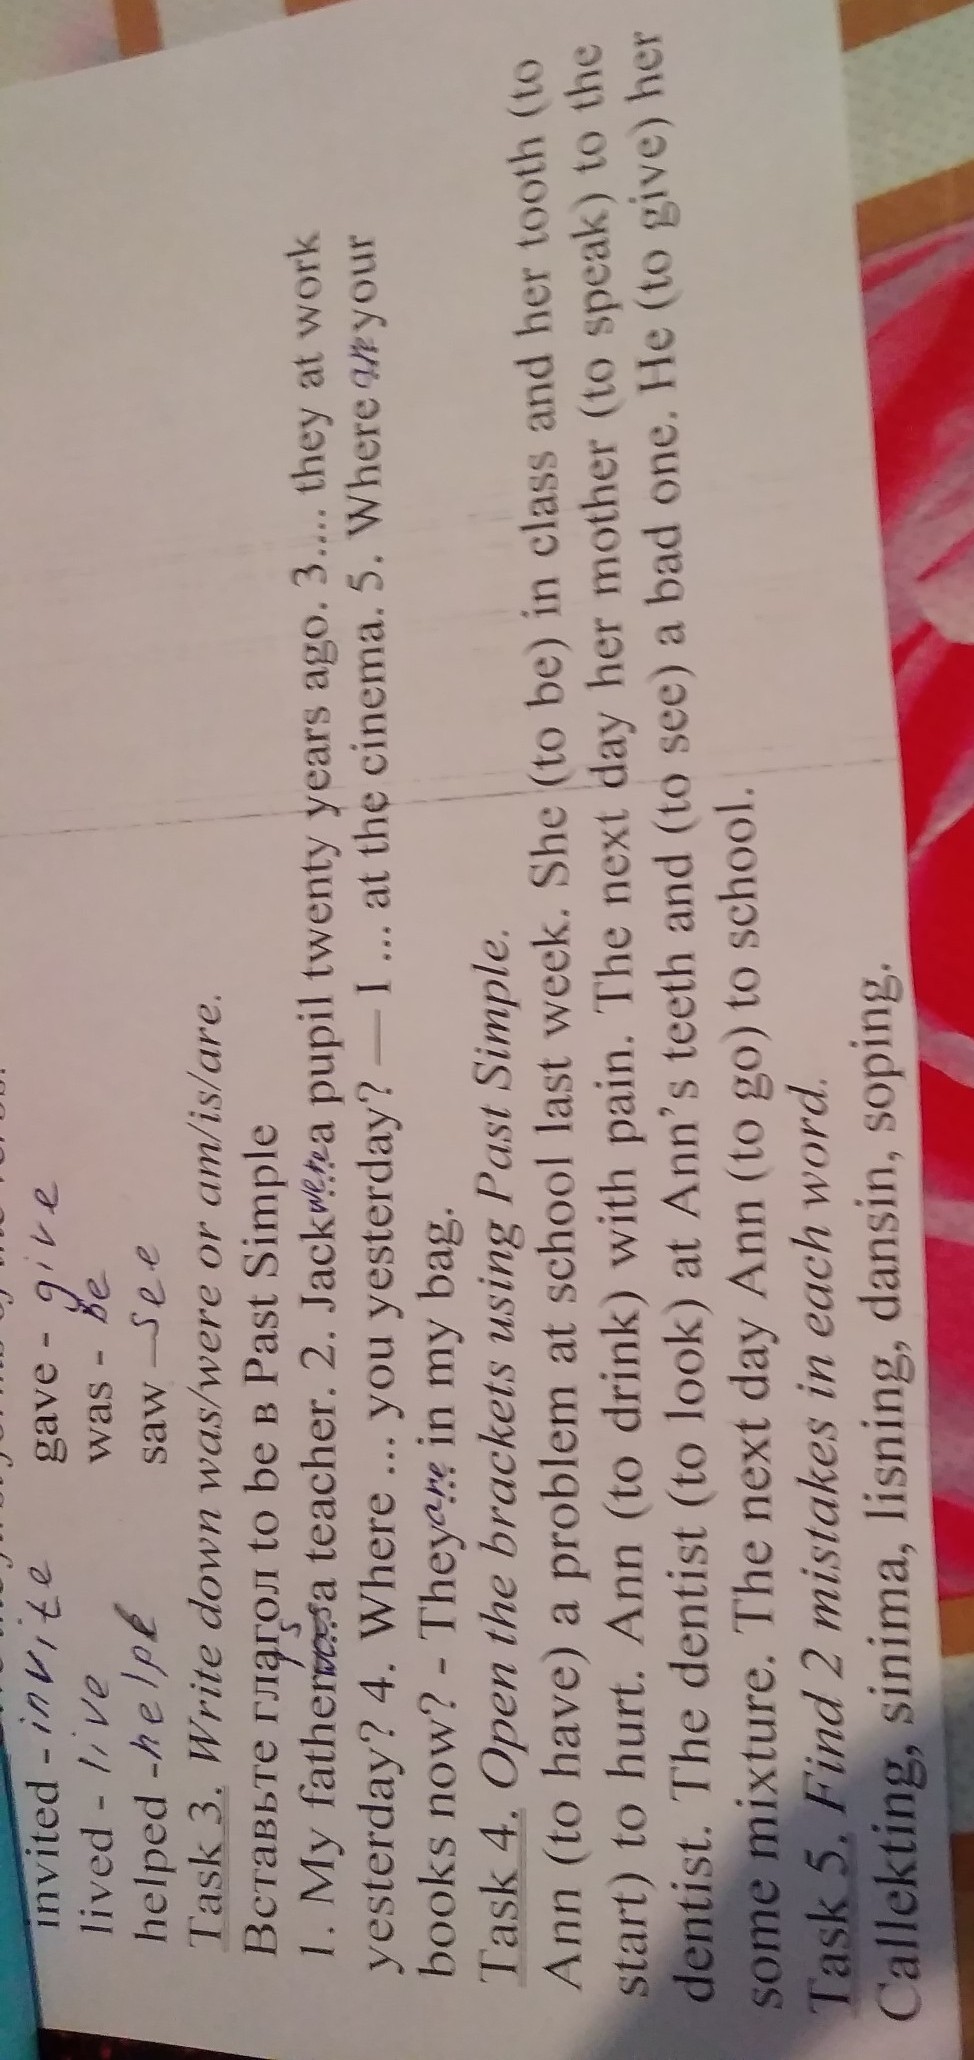 invited - invite gave - give
lived - live was - be
helped - help saw - see
Task 3. Write down was/were or am/is/are.
Вставьте глагол to be в Past Simple
1. My father a teacher. 2. Jack were a pupil twenty years ago. 3.... they at work
yesterday? 4. Where ... you yesterday? — I ... at the cinema. 5. Where are your
books now? - They are in my bag.
Task 4. Open the brackets using Past Simple.
Ann (to have) a problem at school last week. She (to be) in class and her tooth (to
start) to hurt. Ann (to drink) with pain. The next day her mother (to speak) to the
dentist. The dentist (to look) at Ann's teeth and (to see) a bad one. He (to give) her
some mixture. The next day Ann (to go) to school.
Task 5. Find 2 mistakes in each word.
Callekting, sinima, lisning, dansin, soping.